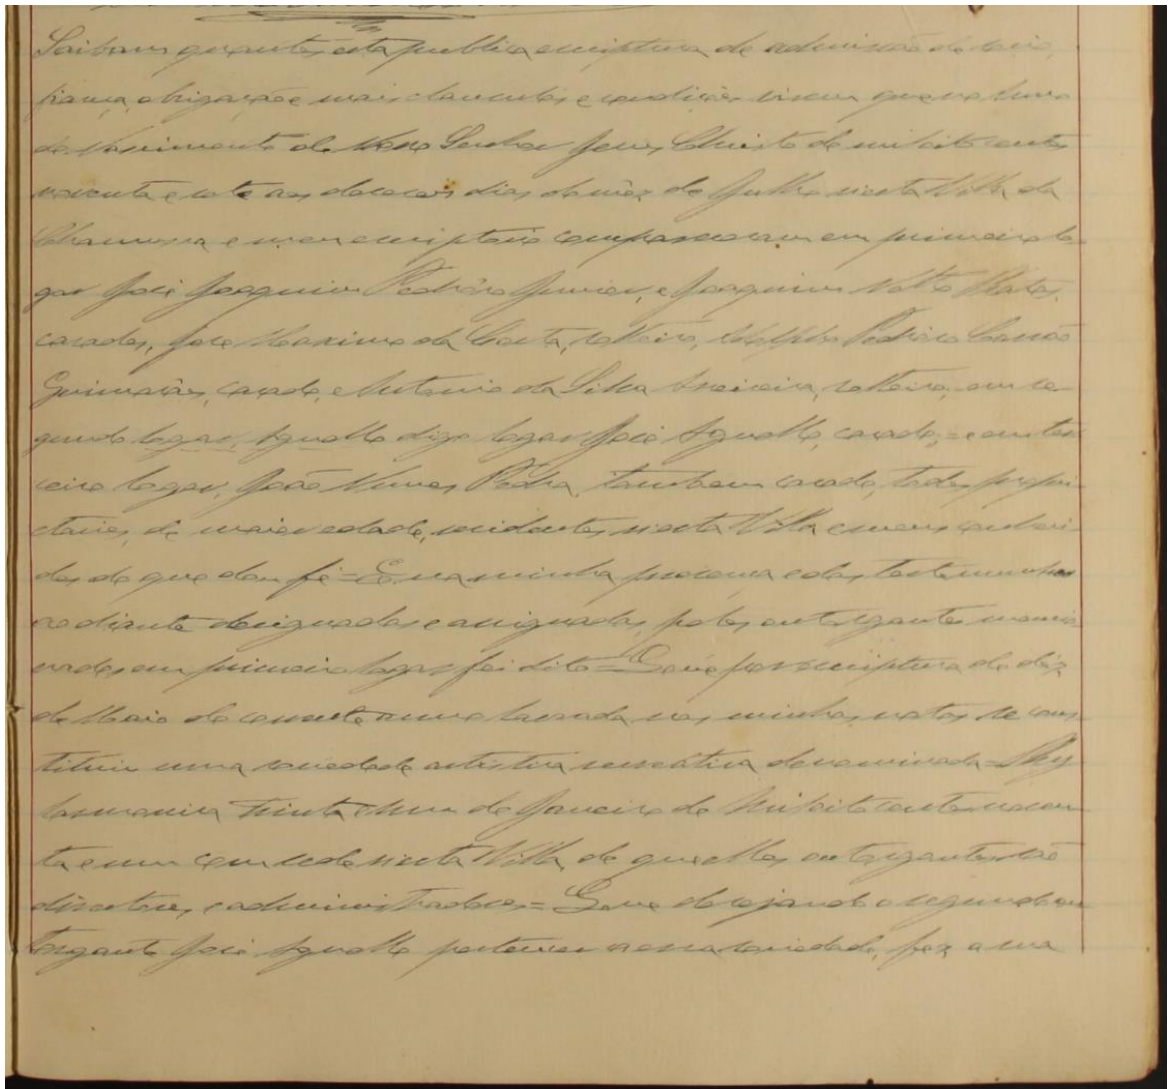 Saibam quantos esta publica escriptura de admissão de socio,
fiança, obrigação e mais clausulas e condições virem que no Anno
do Nascimento de Nosso Senhor Jesus Christo de mil oito centos
noventa e sete aos dezeseis dias do mez de Julho nesta Villa da
Chamusca e meu escriptorio compareceram em primeiro lo-
gar José Joaquim Pedrôso Junior, e Joaquim
casados, José Maximo da Costa, solteiro, Pedrôso
Guimarães, casado, e Antonio da Silva solteiro, em se-
gundo logar, digo logar José casado, = e em ter-
ceiro logar, João Nunes Pedra, tambem casado, todos propri-
etarios, de maior edade, residentes nesta Villa e meus conheci-
dos do que dou fé = E na minha presença e das testemunhas
ao diante designadas e assignadas, pelos outorgantes menci
nados em primeiro logar foi dito = Que por escriptura de dez
de Maio do corrente anno lavrada nas minhas notas se cons
tituiu uma sociedade artistica recreativa denominada = Phy
larmonica Trinta e hum de Janeiro de mil oito centos noven
ta e um com sede nesta Villa, de que elles outorgantes são
directores e administradores = Que desejando o segundo ou
torgante José pertencer a essa sociedade, fez a sua